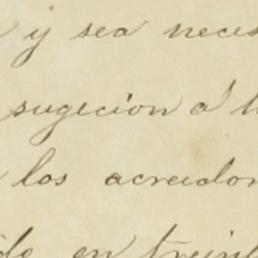 y sea neces
sugecion a l
los acreedor
do en treint